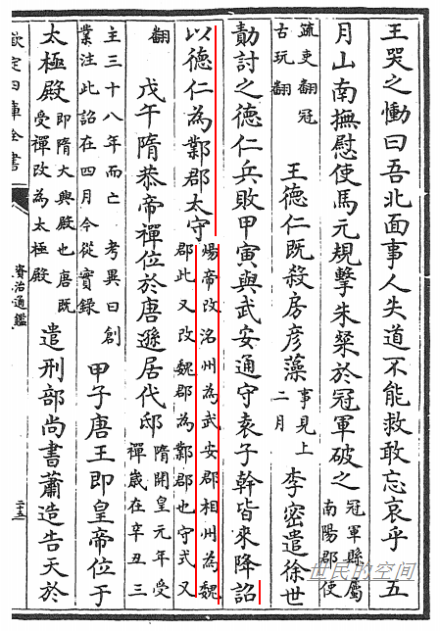 王哭之慟曰吾北面事人失道不能救敢忘哀乎 五
月山南撫慰使馬元規擊朱粲於冠軍破之 冠軍縣屬南陽郡使
疏吏翻冠古玩翻 王德仁既殺房彦藻 事見上二月 李密遣徐世
勣討之德仁兵敗甲寅與武安通守袁子幹皆來降詔
以德仁為鄴郡太守 煬帝改洺州為武安郡相州為魏郡此又改魏郡為鄴郡也守式又
翻 戊午隋恭帝禪位於唐遜居代邸 隋開皇元年受禪歲在辛丑三
主三十八年而亡 考異曰創業注此詔在四月今從實錄 甲子唐王即皇帝位于
太極殿 即隋大興殿也唐既受禪改為太極殿 遣刑部尚書蕭造告天於
欽定四庫全書
資治通鑑
世民的空间